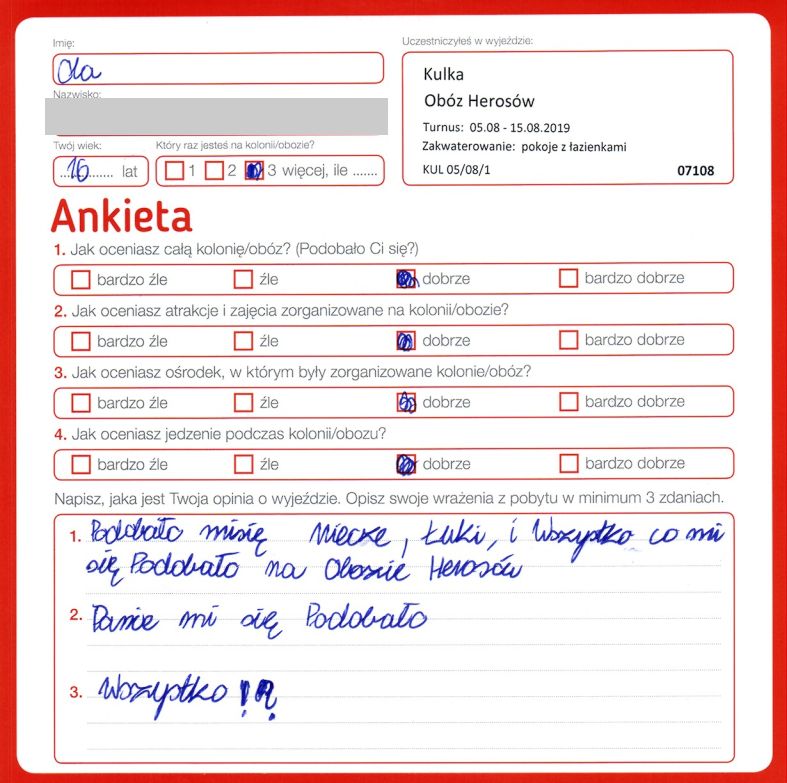 Imię:
Uczestniczyłeś w wyjeździe:
Ola
Kulka
Obóz Herosów
Turnus: 05.08 - 15.08.2019
Zakwaterowanie: pokoje z łazienkami
KUL 05/08/1 07108
Nazwisko:
Twój wiek:
Który raz jesteś na kolonii/obozie?
...16...... lat
1 2 3 więcej, ile .......
Ankieta
1. Jak oceniasz całą kolonię/obóz? (Podobało Ci się?)
bardzo źle źle dobrze bardzo dobrze
2. Jak oceniasz atrakcje i zajęcia zorganizowane na kolonii/obozie?
bardzo źle źle dobrze bardzo dobrze
3. Jak oceniasz ośrodek, w którym były zorganizowane kolonie/obóz?
bardzo źle źle dobrze bardzo dobrze
4. Jak oceniasz jedzenie podczas kolonii/obozu?
bardzo źle źle dobrze bardzo dobrze
Napisz, jaka jest Twoja opinia o wyjeździe. Opisz swoje wrażenia z pobytu w minimum 3 zdaniach.
1. Podobało misię Miecze, Łuki, i Wszyptko co mi
się Podobało na Obozie Herosów
2. Panie mi się Podobało
3. Wszyptko !